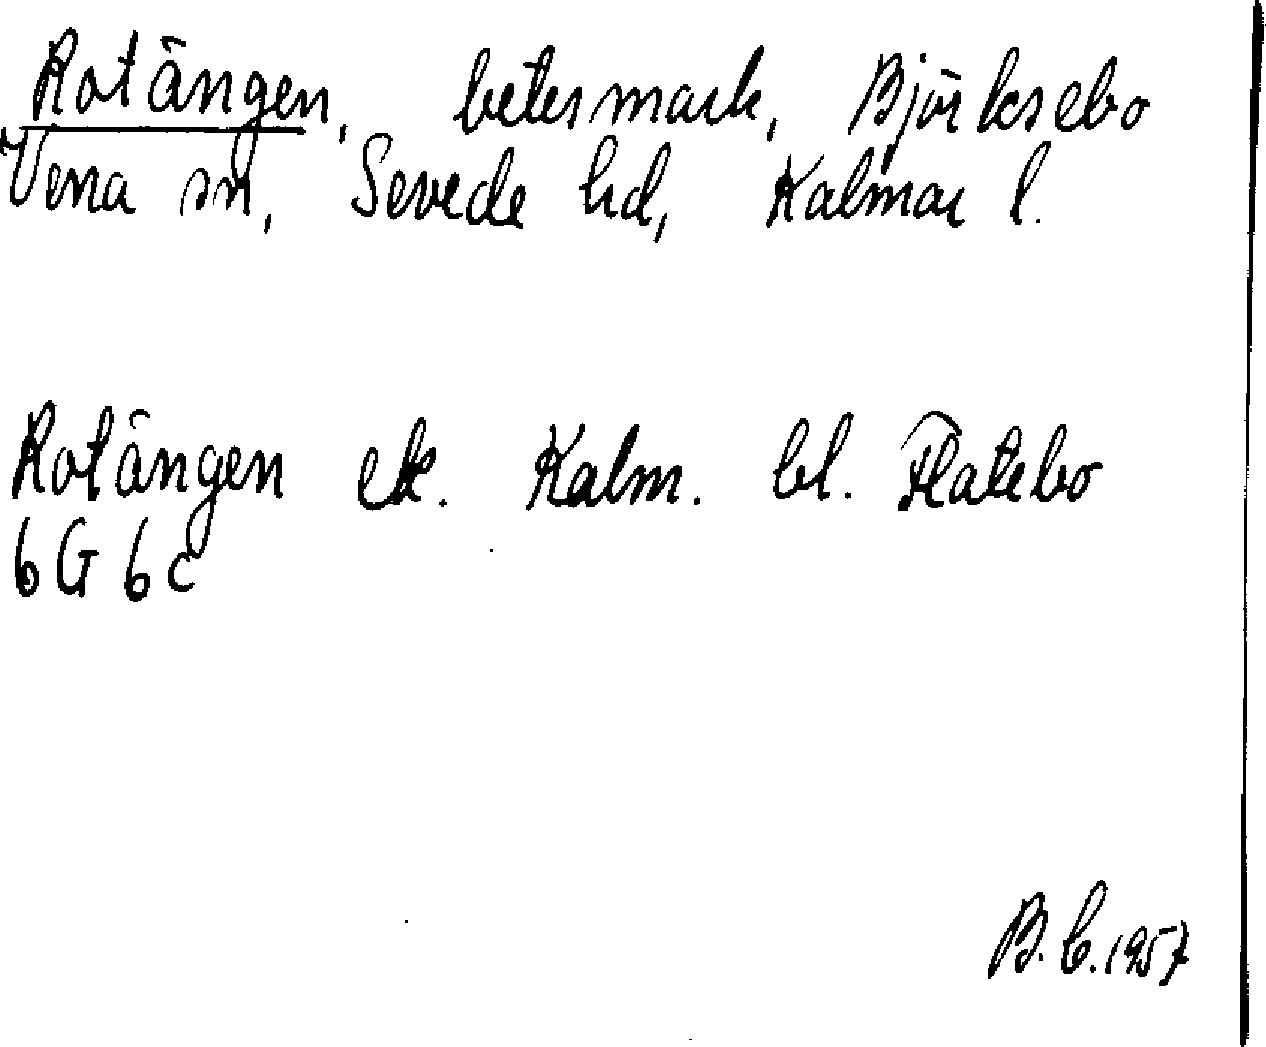 Rotängen, betesmark, Björksebo
Vena sn, Sevede hd, Kalmar l.
Rotängen ek. Kalm. bl. Flatebo
6G 6c
B.C. 1957